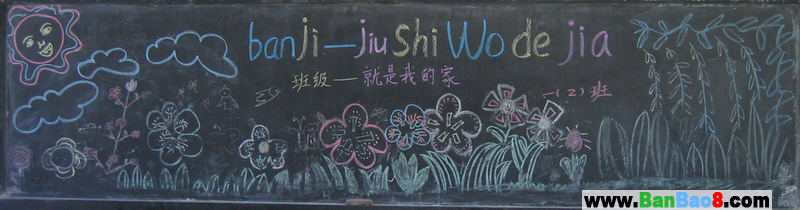 banji—jiu Shi Wo de jia
班级—就是我的家
一(2)班
www.BanBao8.com